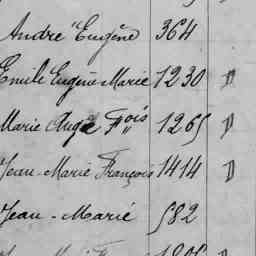 André Eugène 364
Emile Eugène Marie 1230 D
Marie Ange Fois 1265 D
Jean-Marie François 1414 D
Jean-Marie 582